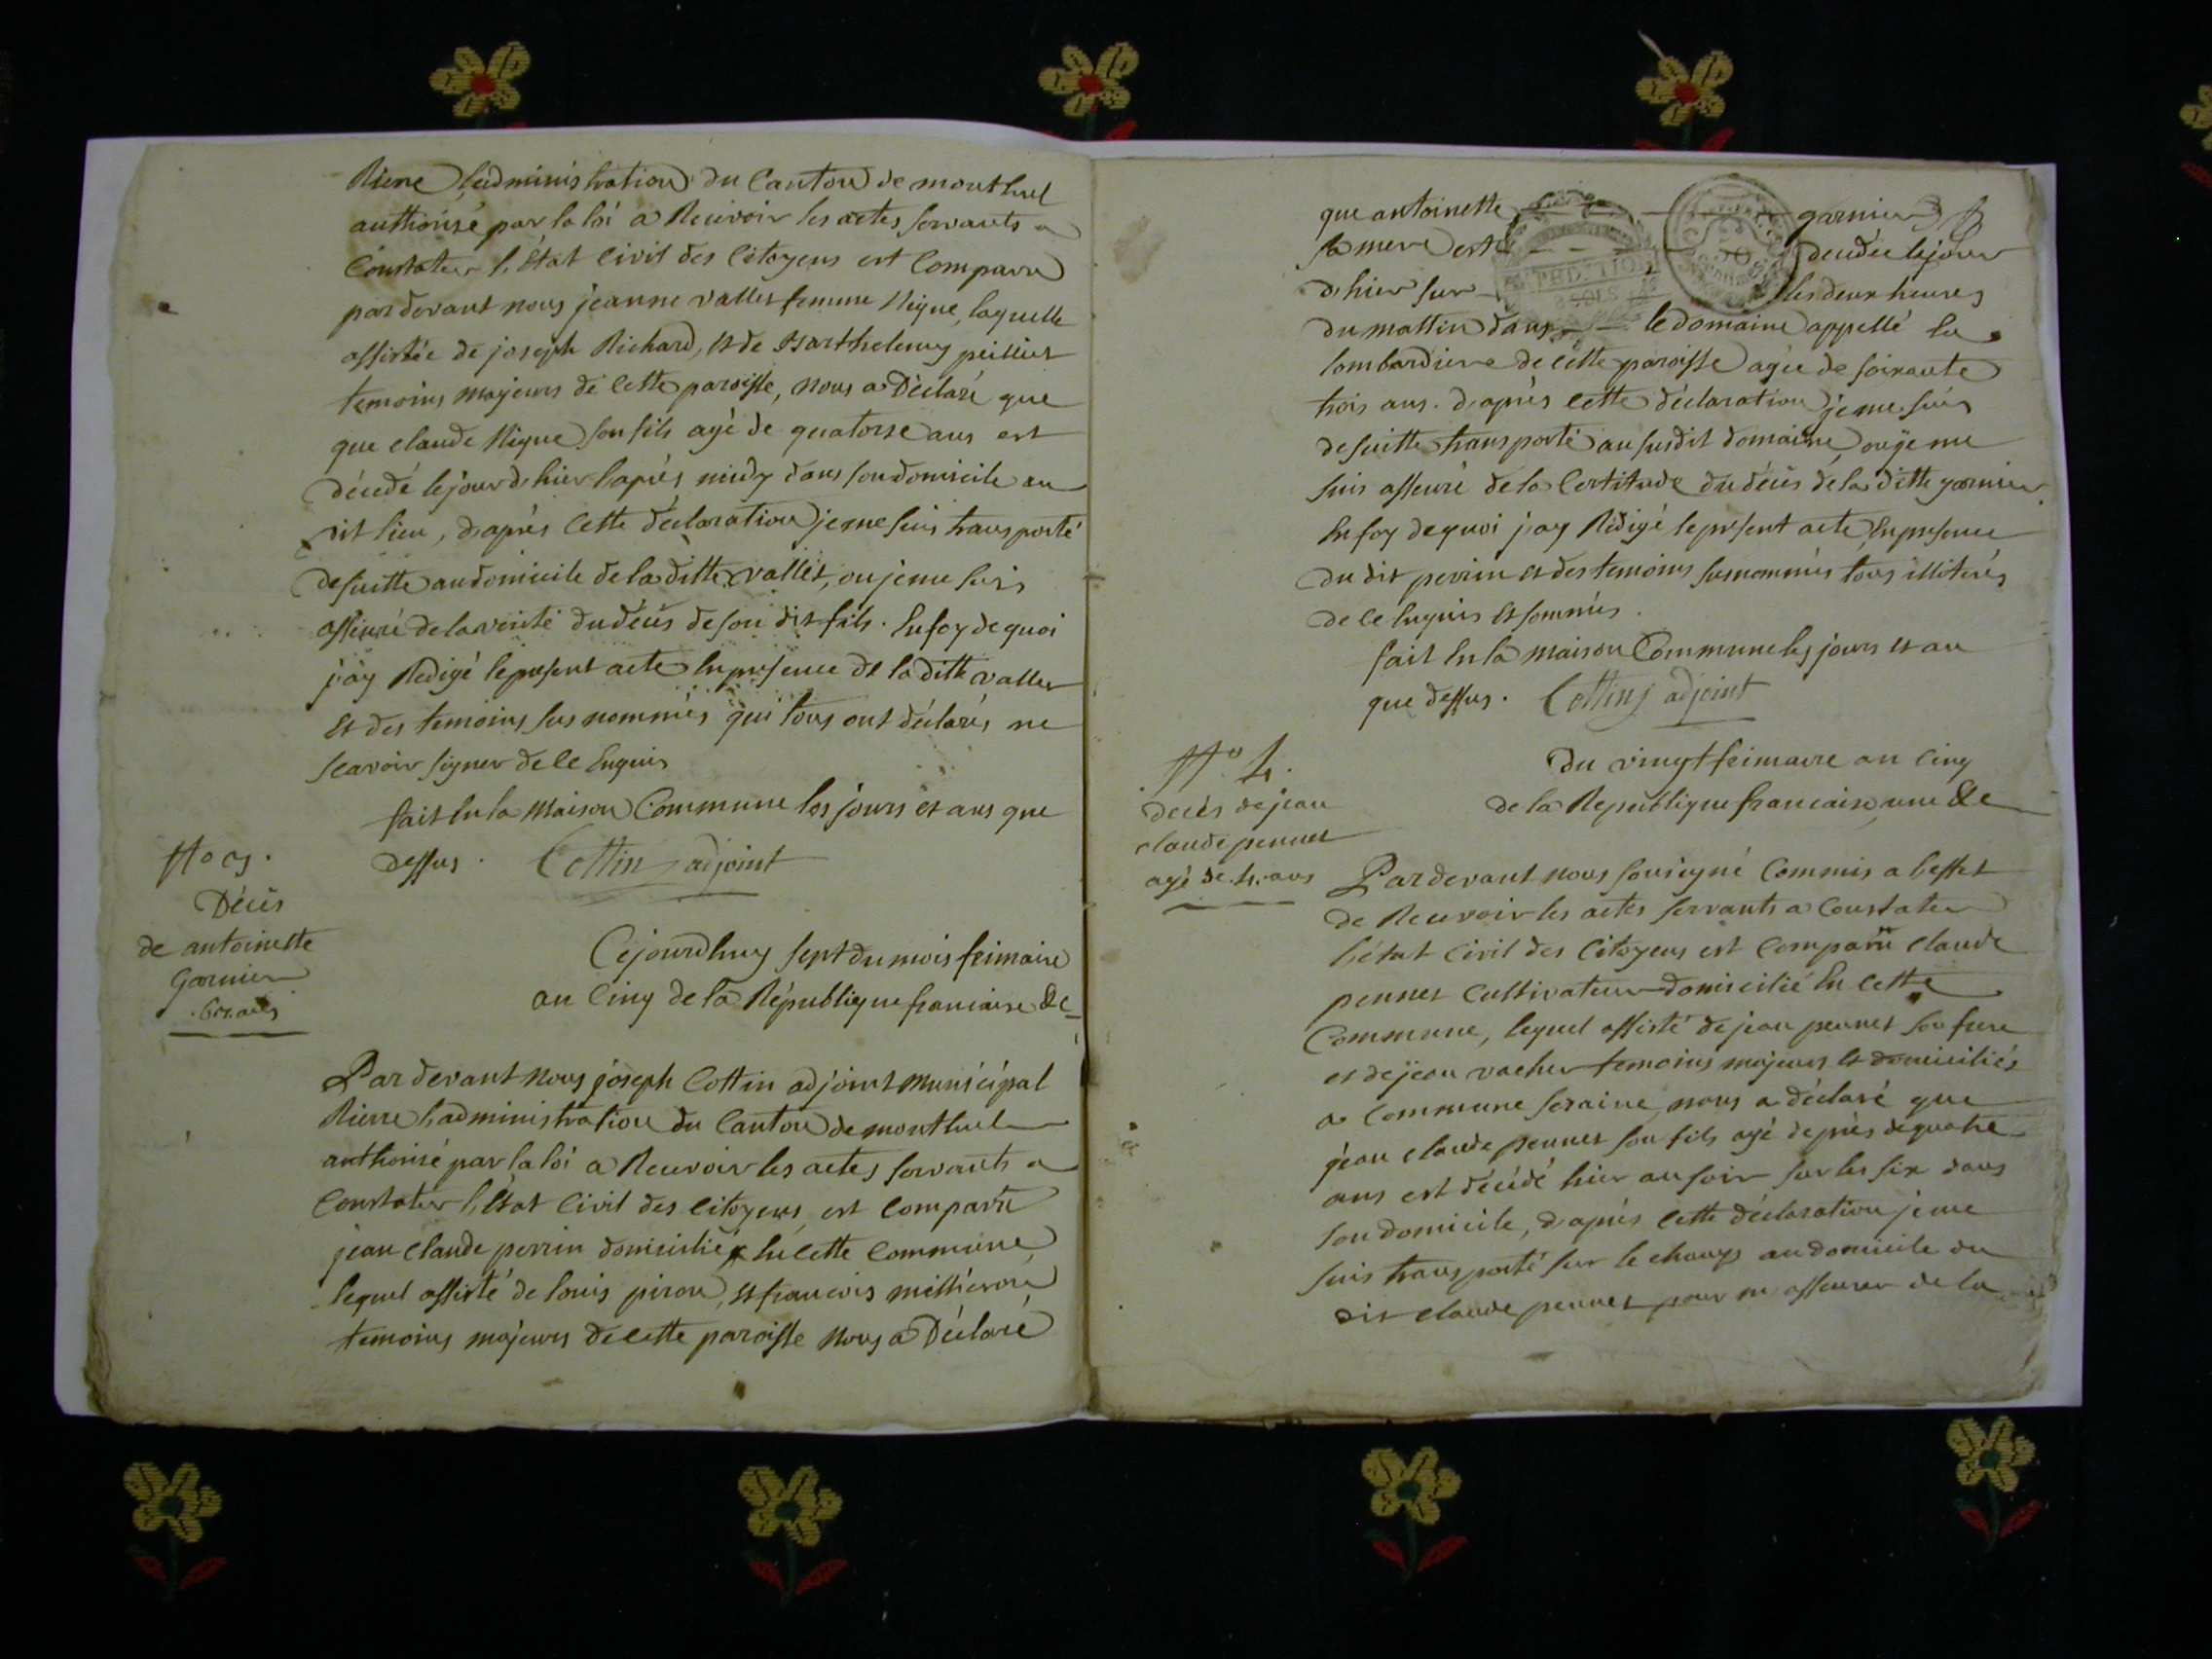 Riere l'administration du Canton de montluel
authorisé par la loi a Recevoir les actes servants a
Constater l'État Civil des Citoyens est Comparu
par devant nous jeanne vallet femme Nique, laquelle
assistée de joseph Richard, et de Barthelemy peillier
temoins majeurs de cette paroisse, nous a Déclaré que
que claude Nique son fils agé de quatorse ans est
décedé le jour d'hier l'après midy dans son domicile au
dit lieu, d'après Cette déclaration je me suis transporté
de suitte au domicile de la ditte vallet, ou je me suis
asseuré de la verité du décès de son dit fils. En foy de quoi
j'ay Redigé le present acte En presence de la ditte vallet
Et des temoins sus nommés qui tous ont déclarés ne
scavoir signer de ce Enquis
fait En la Maison Commune les jours et ans que
dessus. Cottin adjoint
No 3.
Décès
de antoinette
Garnier
63. ans
Cejourdhuy sept du mois frimaire
an Cinq de la République francaise &c
Par devant Nous joseph Cottin adjoint Municipal
Riere l'administration du Canton de montluel
authorisé par la loi a Recevoir les actes servants a
Constater l'État Civil des Citoyens, est Comparu
jean Claude perrin domicilié En cette Commune
lequel assisté de louis piron, et francois
temoins majeurs de cette paroisse Nous a Déclaré
que antoinette garnier
sa mere est décédée le jour
d'hier sur les deux heures
du mattin dans le domaine appellé la
lombardiere de cette paroisse agée de soixante
trois ans. d'après cette déclaration je me suis
de suitte transporté au susdit domaine ou je me
suis asseuré de la Certitude du décès de la ditte garnier
En foy de quoi j'ay Rédigé le present acte En presence
du dit perrin et des temoins susnommés tous illiterés
de ce Enquis Et sommés.
fait En la maison Commune les jours et an
que dessus. Cottin adjoint
No 4.
décès de jean
claude pennet
agé de 4. ans
Du vingt frimaire an Cinq
de la République francaise une &c
Par devant nous sousigné Commis a l'effet
de Recevoir les actes servants a Constater
l'état Civil des Citoyens est Comparu claude
pennet Cultivateur domicilié En cette
Commune, lequel assisté de jean pennet son frere
et de jean vacher temoins majeurs et domiciliés
a Commune nous a déclaré que
jean claude pennet son fils agé de près de quatre
ans est décédé hier au soir sur les six dans
son domicile, d'après cette déclaration je me
suis transporté sur le champ au domicile du
dit claude pennet pour m'asseurer de la